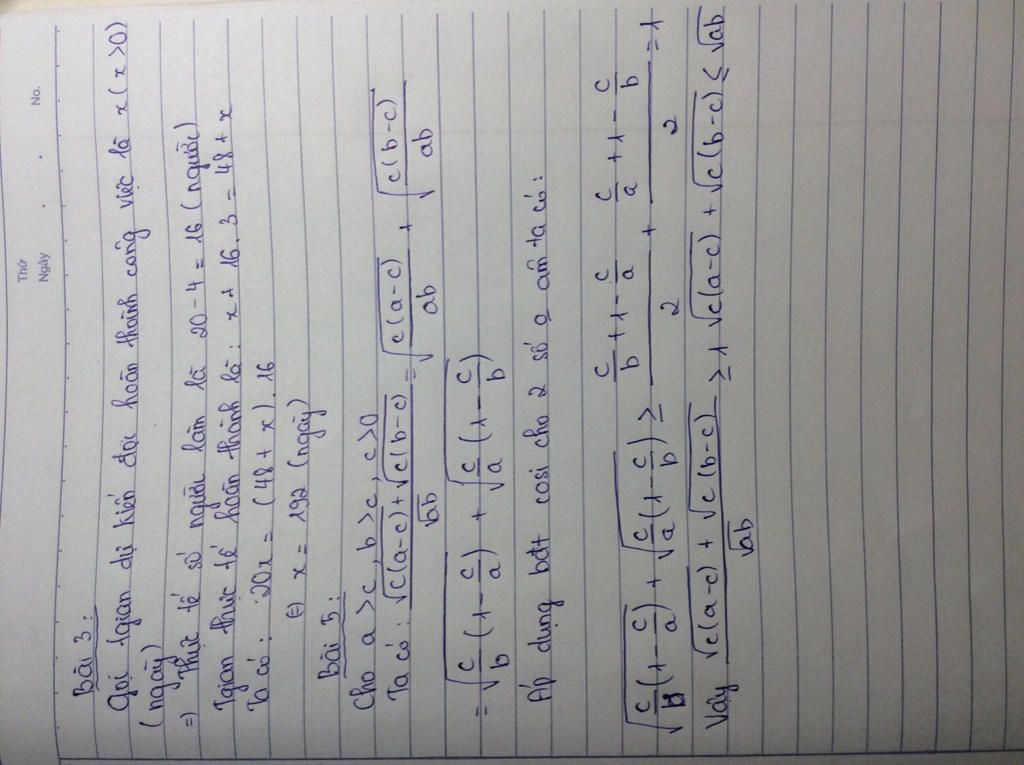 Thứ
Ngày . . No.
Bài 3:
Gọi tgian dự kiến đội hoàn thành công việc là x (x>0)
(ngày)
=) Thực tế số người làm là 20-4 = 16 (người)
Tgian thực tế hoàn thành là: x + 16.3 = 48 + x
Ta có: 20x = (48 + x).16
(=) x = 192 (ngày)
Bài 5:
Cho a>c, b>c, c>0
Ta có: (√(c(a-c)) + √(c(b-c)))/√ab = √(c(a-c)/ab) + √(c(b-c)/ab)
= √(c/b (1 - c/a)) + √(c/a (1 - c/b))
Áp dụng bđt cosi cho 2 số o âm ta có:
√(c/b (1 - c/a)) + √(c/a (1 - c/b)) ≥ (c/b + 1 - c/a)/2 + (c/a + 1 - c/b)/2 = 1
Vậy (√(c(a-c)) + √(c(b-c)))/√ab ≥ 1 √(c(a-c)) + √(c(b-c)) ≤ √ab